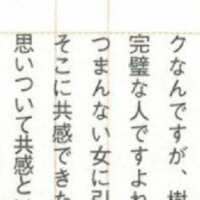 クなんですが、樹
完璧な人ですよね
つまんない女に引
そこに共感できた
思いついて共感と